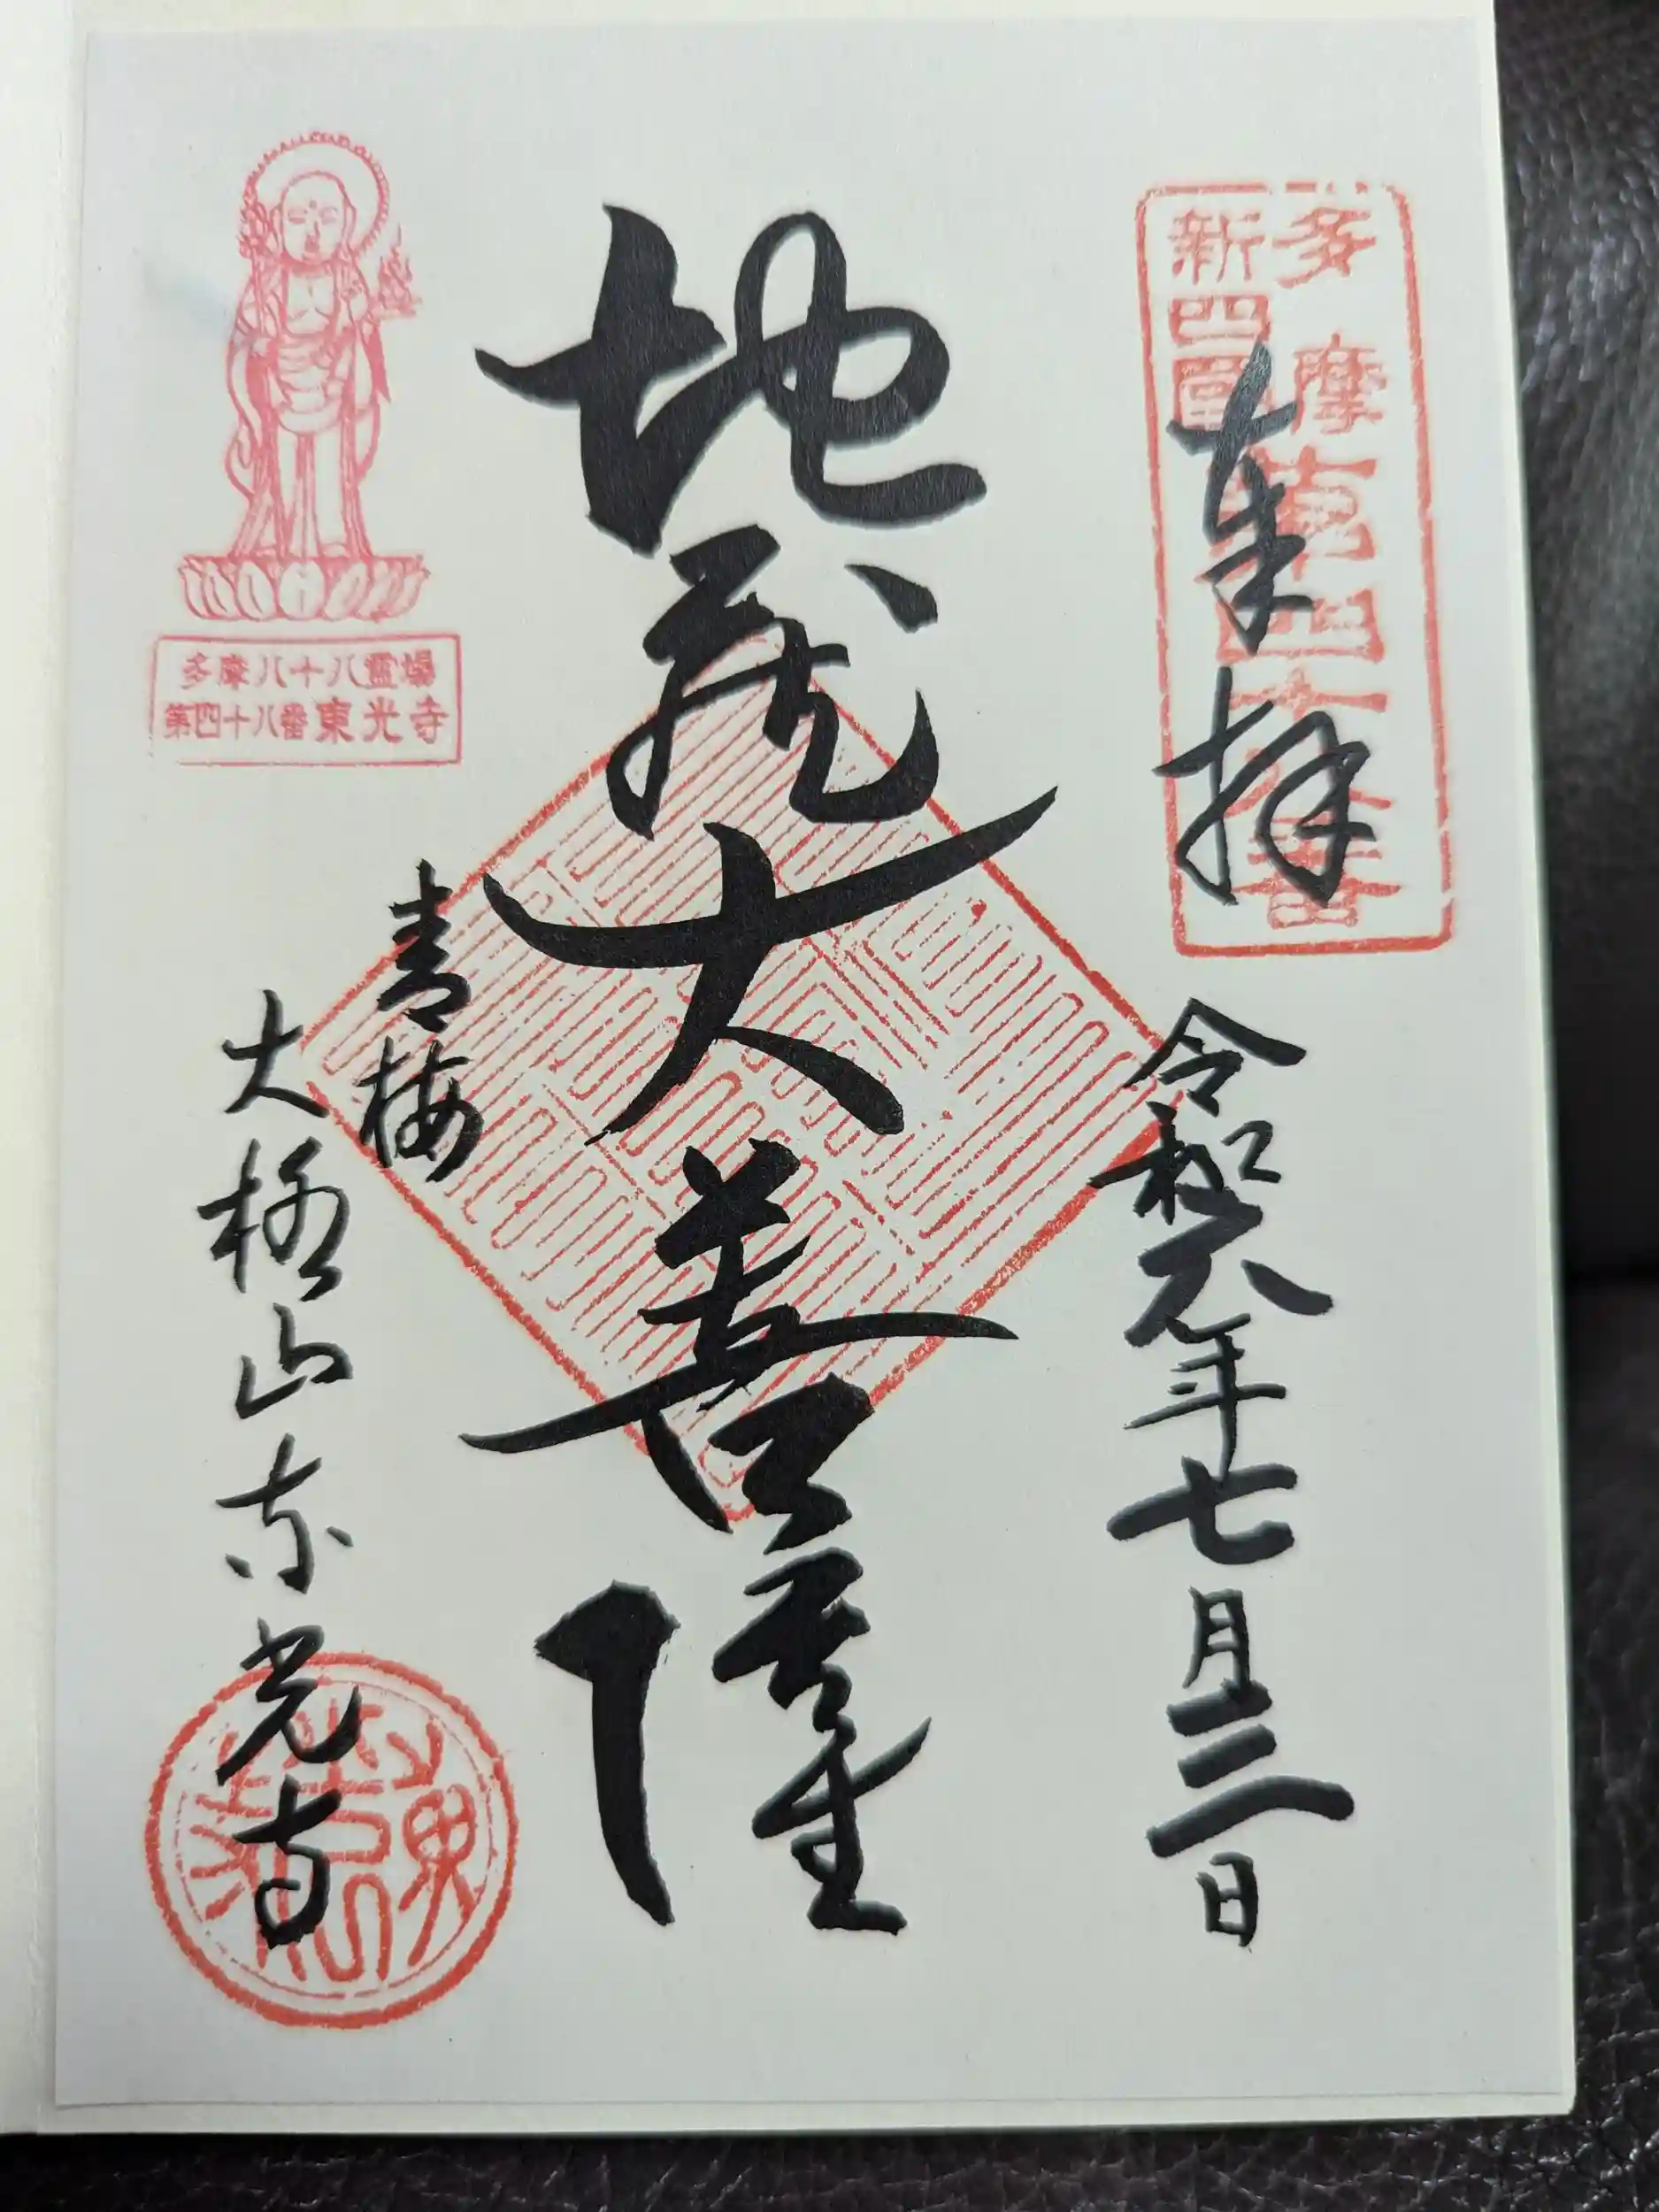 多摩
新四國
第四十八番
奉拝
令和六年七月三日
地蔵大菩薩
青梅
大柳山東光寺
多摩八十八霊場
第四十八番東光寺